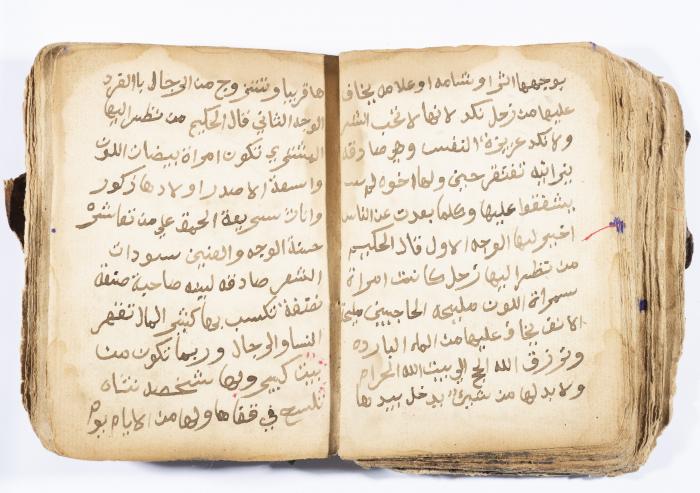 بوجهها اثر او شامه او علامه يخاف
عليها من زحل نكد لانها لا تحب النظر
ولا نكد عزيزة النفس وهي صادقه
تفتقر حين ولها اخوه ليس
يشفقوا عليها وكلما بعدت عن الناس
اخير ليها الوجه الاول قال الحكيم
من نظر اليها زحل كانت امراة
سمرانة اللون مليحه الحاجبين
الانف يخاف عليها من الماء البارده
وترزق الله الحج الي بيت الله الحرام
ولا بد لها من شيئ يدخل بيدها
ها قريبا وتتزوج من الرجال باالفرد
الوجه الثاني قال الحكيم من نظر اليها
المشتري تكون امراة بيضات اللون
واسعة الاصدر اولادها ذكور
واناث سريعة الحمق علي من تعاشره
حسنة الوجه والعينين سودات
الشعر صادقه لبيبه صاحبة صنعة
تكسب بها كثير المال تقهر
النسا والرجال وربما تكون من
بيت كبير ولها شخصه
في قفاها ولها من الايام يوم